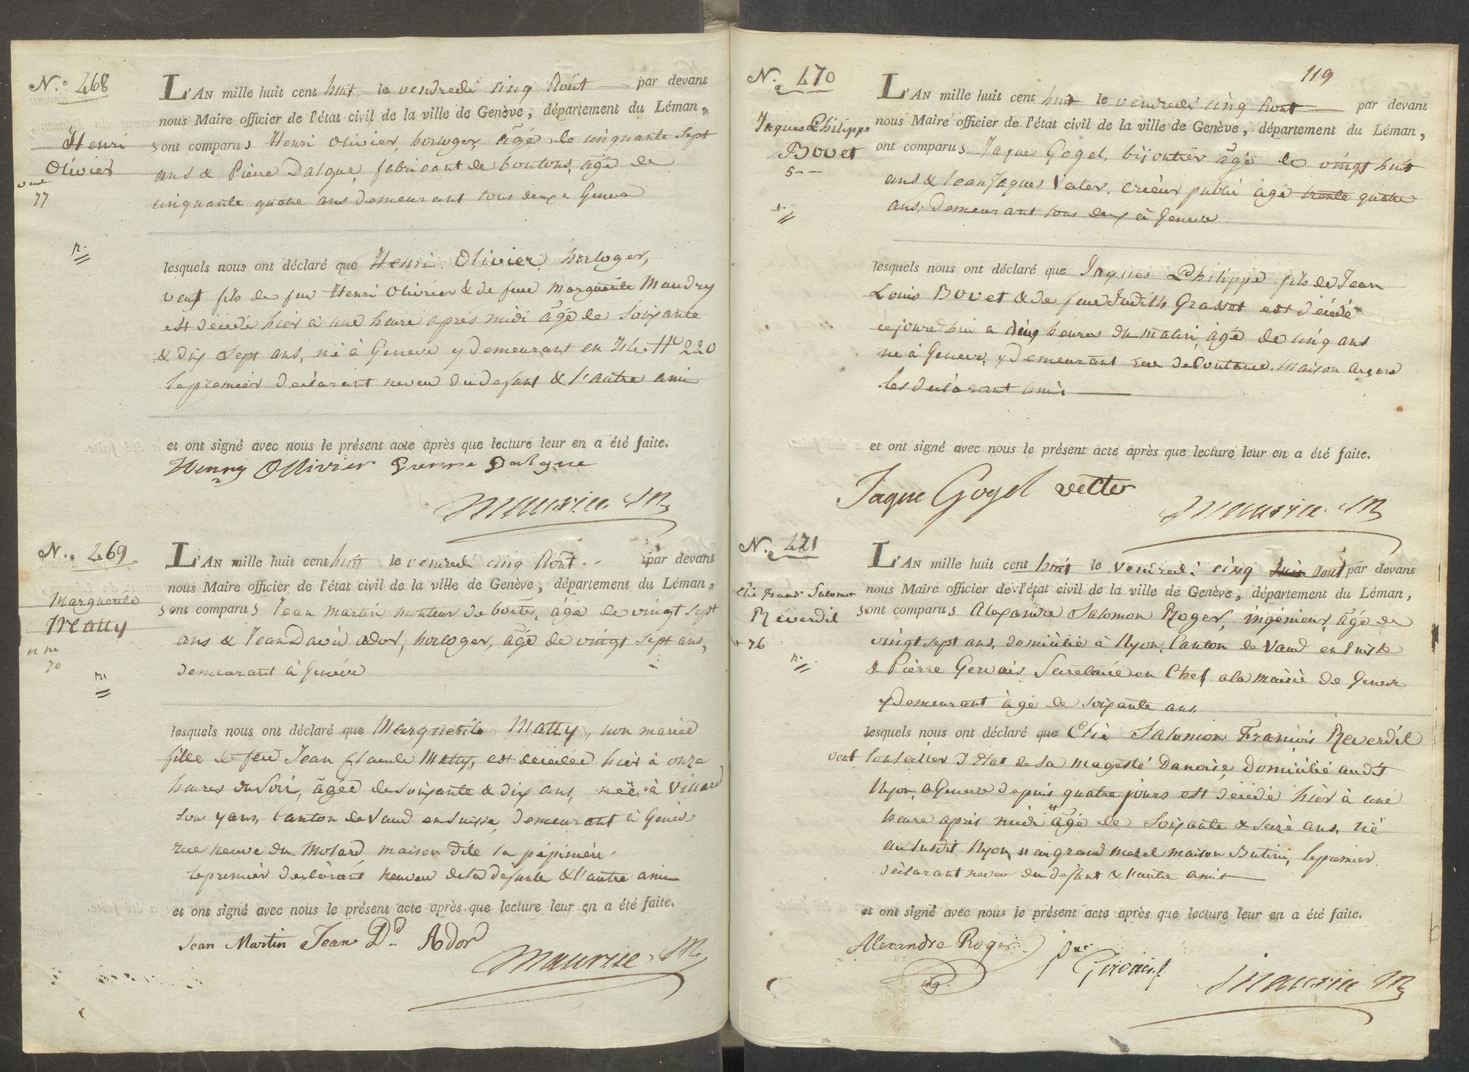 N.° 468
Henri
Olivier
veuf
77
n.
L'AN mille huit cent huit le vendredi cinq Août par devant
nous Maire officier de l'état civil de la ville de Genève, département du Léman,
sont comparus Henri Olivier, horloger, âgé de cinquante sept
ans & Pierre Dalque fabricant de boutons, âgé de
cinquante quatre ans demeurant tous deux a Geneve
lesquels nous ont déclaré que Henri Olivier, horloger,
veuf fils de feu Henri Olivier & de feue Marguerite Maudry
est décédé hier à une heure après midi âgé de Soixante
& dix Sept ans, né à Geneve y demeurant en Isle N° 220
le premier déclarant neveu du defunt & l'autre ami
et ont signé avec nous le présent acte après que lecture leur en a été faite.
Henry Ollivier Pierre Dalque
Maurice M
N.° 469
Marguerite
Matty
n m
70
n.
L'AN mille huit cent huit le vendredi cinq Août par devant
nous Maire officier de l'état civil de la ville de Genève, département du Léman,
sont comparus Jean Martin monteur de boëtes, âgé de vingt sept
ans & Jean David Ador, horloger, âgé de vingt sept ans,
demeurant à Genève
lesquels nous ont déclaré que Marguerite Matty, non mariée
fille de feu Jean Claude Matty, est décédée hier à onze
heures du Soir, âgée de soixante & dix ans, née à Villard
Sou yans Canton de Vaud en Suisse, demeurant à Genève
rue neuve du Molard maison dite la pépiniére
le premier déclarant neveu de la défunte & l'autre ami
et ont signé avec nous le présent acte après que lecture leur en a été faite.
Jean Martin Jean Dd Ador
Maurice M.
119
N.° 470
Jaques Philippe
Bovet
5
n.
L'AN mille huit cent huit le vendredi cinq Aout par devant
nous Maire officier de l'état civil de la ville de Genève, département du Léman,
ont comparus Jaque Gogel, bijoutier âgé de vingt huit
ans & Jean Jaques Vater, crieur public âgé trente quatre
ans, demeurant tous deux à Geneve
lesquels nous ont déclaré que Jaques Philippe fils de Jean
Louis Bovet & de feue Judith Gravet est décédé
cejourdhui a cinq heures du matin, âgé de cinq ans
né à Geneve, y demeurant rue de Coutance Maison Argand
les déclarant amis
et ont signé avec nous le présent acte après que lecture leur en a été faite.
Jaque Gogel vetter
Maurice M
N.° 471
Elie Franç. Salomon
Reverdil
76
n.
L'AN mille huit cent huit le vendredi cinq aout par devant
nous Maire officier de l'état civil de la ville de Genève, département du Léman,
sont comparus Alexandre Salomon Roger, ingénieur, âgé de
vingt sept ans, domicilié à Nyon, Canton de Vaud en Suisse
& Pierre Gervais Secretaire en Chef a la mairie de Geneve
y demeurant âgé de soixante ans
lesquels nous ont déclaré que Elie Salomon François Reverdil
veuf Conseiller d'Etat de sa magesté Danoise, domicilié audit
Nyon, a Geneve depuis quatre jours est décédé hièr à une
heure après midi âgé de Soixante & seize ans, né
au susdit Nyon, au grand mezel maison Butini, le premier
déclarant neveu du défunt & l'autre amis
et ont signé avec nous le présent acte après que lecture leur en a été faite.
Alexandre Roger
ing.
Prre Gervais
Maurice M